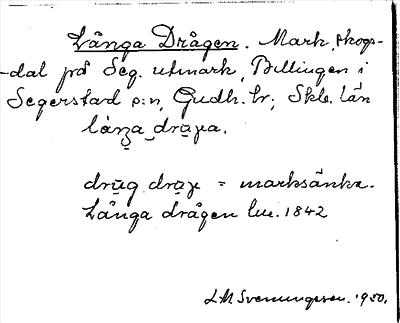 Långa Drågen. Mark, skogs-
-dal på Seg. utmark, Billingen i
Segerstad s:n, Gudh. hr; Skb. län
låŋa drụγa.
drūg drụγ = marksänka.
Långa drågen lm. 1842
LM Svenungsson. 1950.